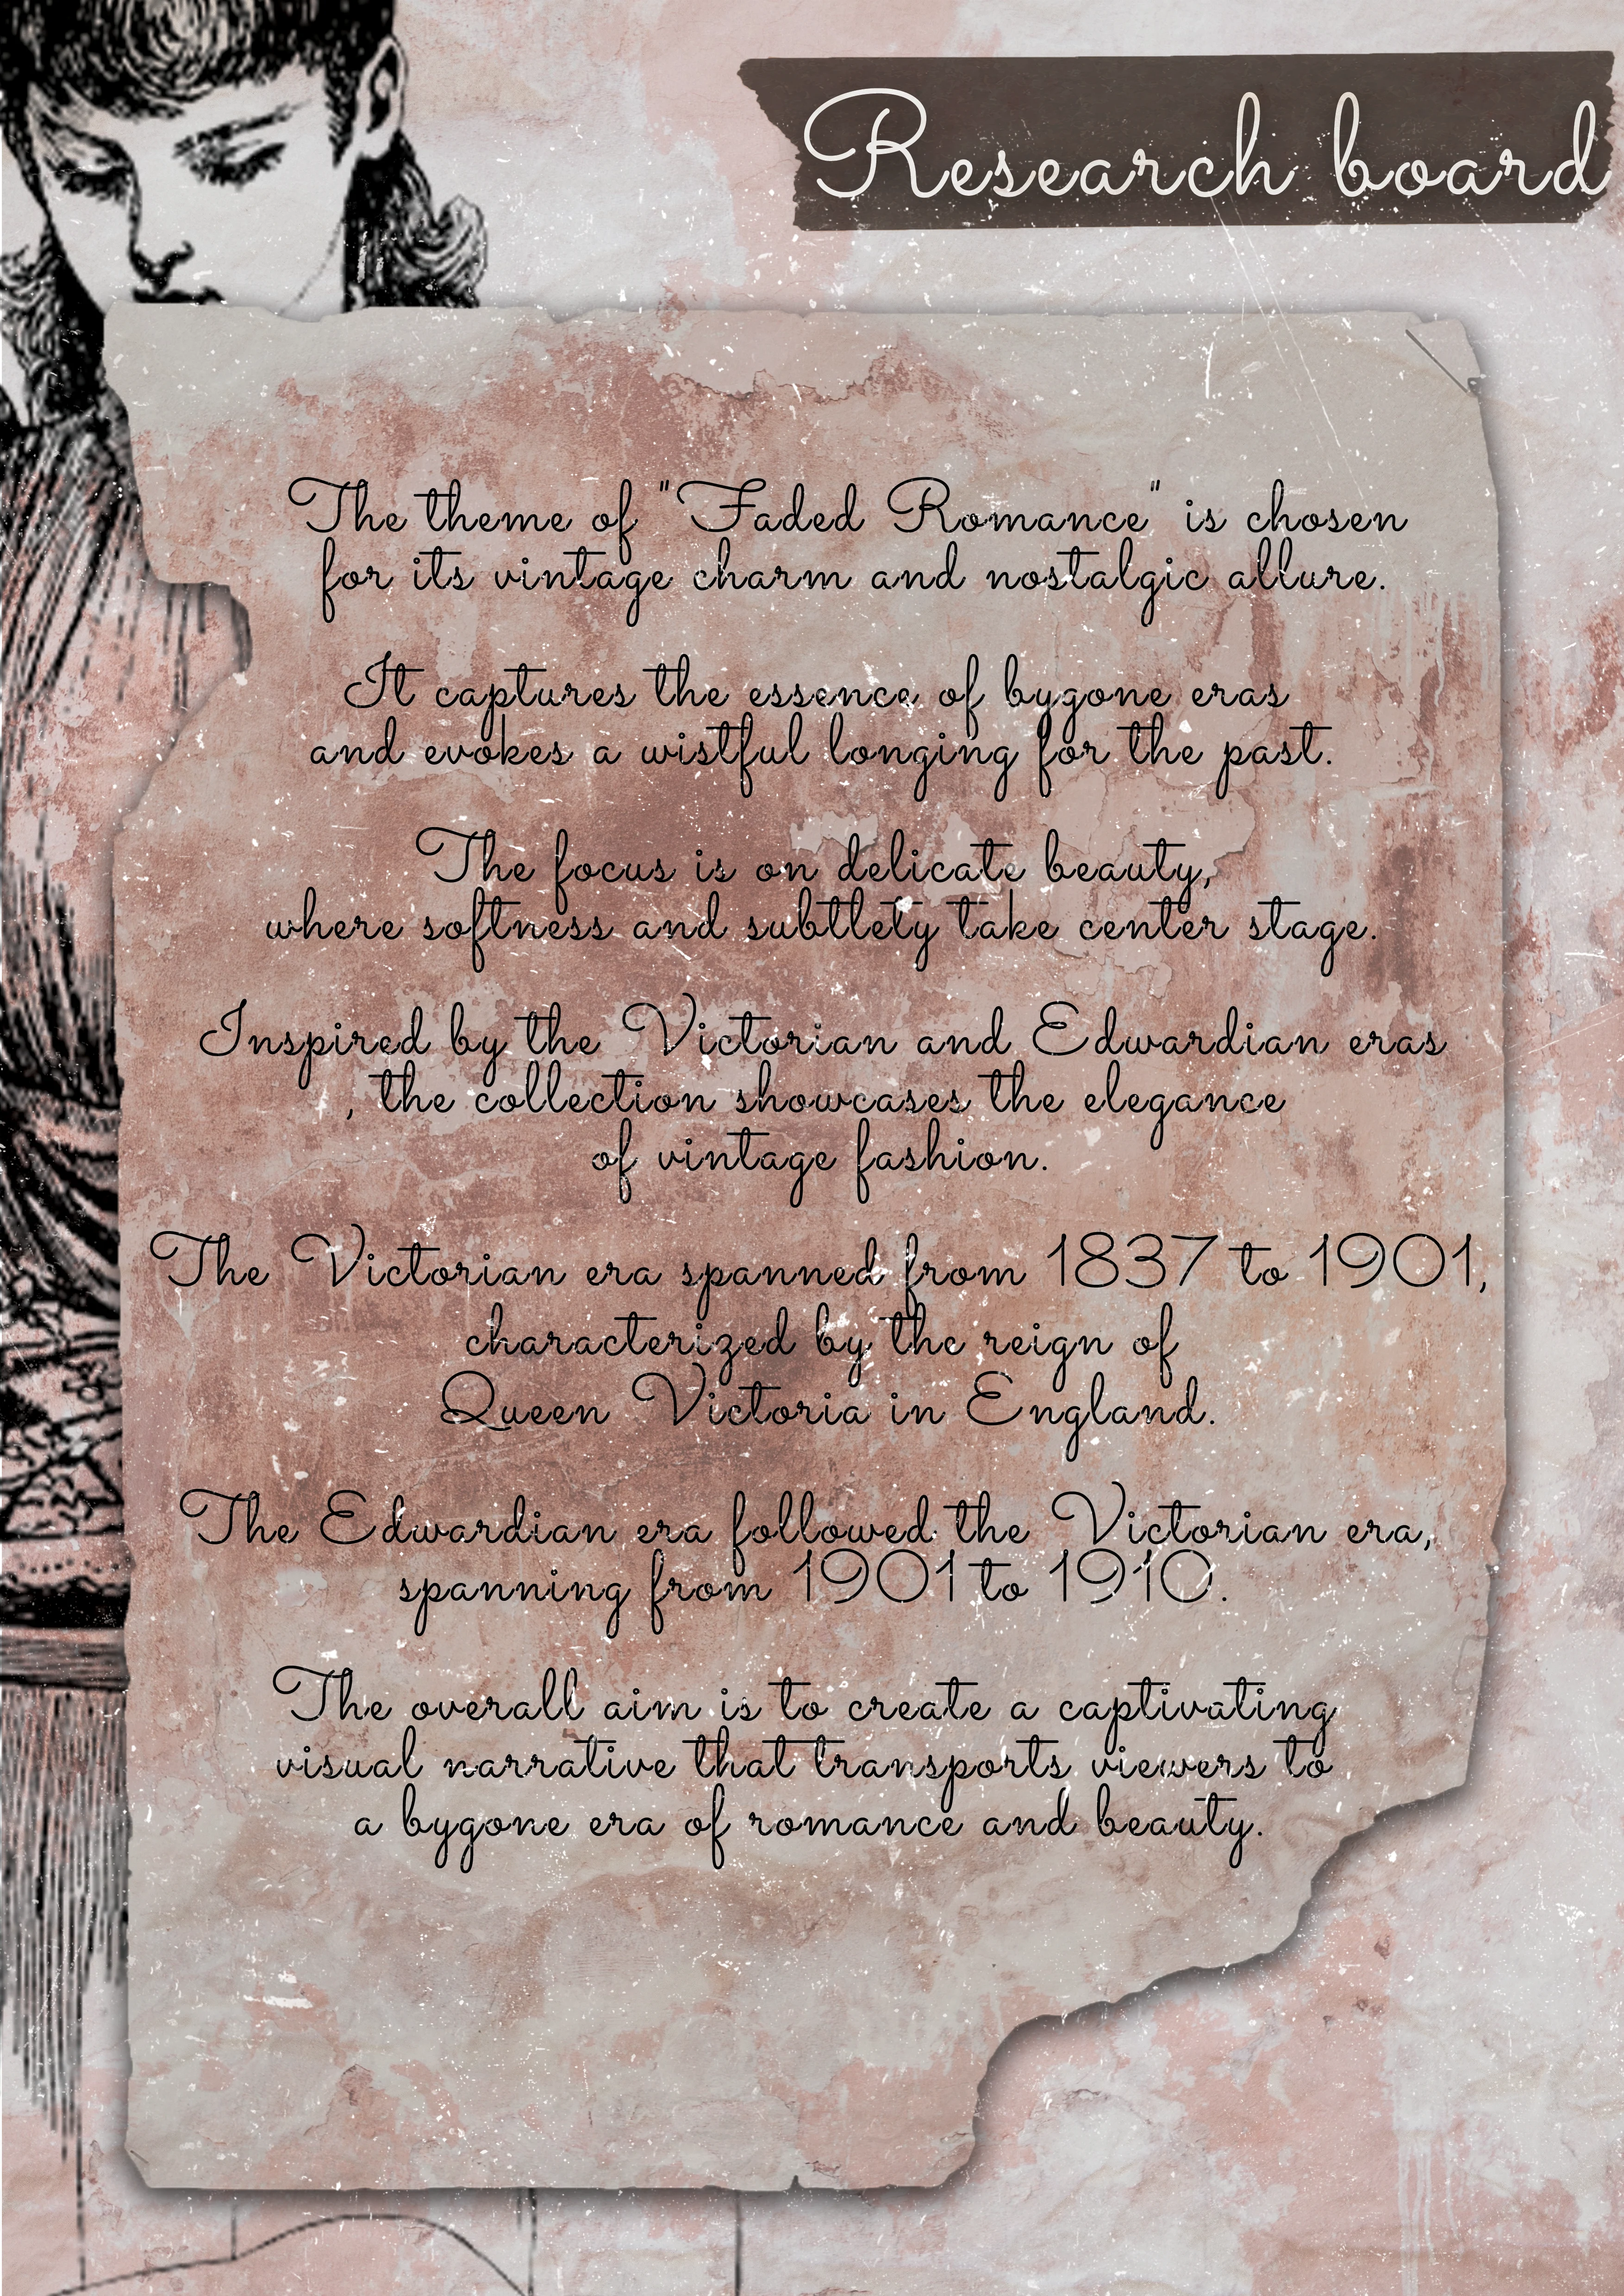 Research board
The theme of "Faded Romance" is chosen
for its vintage charm and nostalgic allure.
It captures the essence of bygone eras
and evokes a wistful longing for the past.
The focus is on delicate beauty,
where softness and subtlety take center stage.
Inspired by the Victorian and Edwardian eras
, the collection showcases the elegance
of vintage fashion.
The Victorian era spanned from 1837 to 1901,
characterized by the reign of
Queen Victoria in England.
The Edwardian era followed the Victorian era,
spanning from 1901 to 1910.
The overall aim is to create a captivating
visual narrative that transports viewers to
a bygone era of romance and beauty.